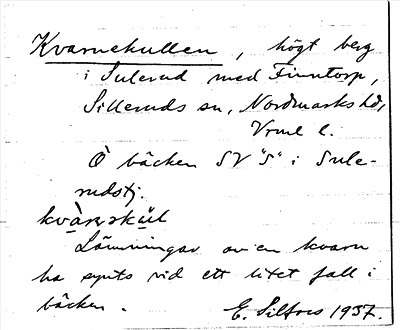 Kvarnekullen, högt berg
i Sulerud med Finntorp,
Silleruds sn, Nordmarks hd,
Vrml l.
Ö bäcken SV "S" i Sule-
rudstj.
kvàrnəkùl
Lämningar av en kvarn
ha synts vid ett litet fall i
bäcken.
E. Silfors 1937.